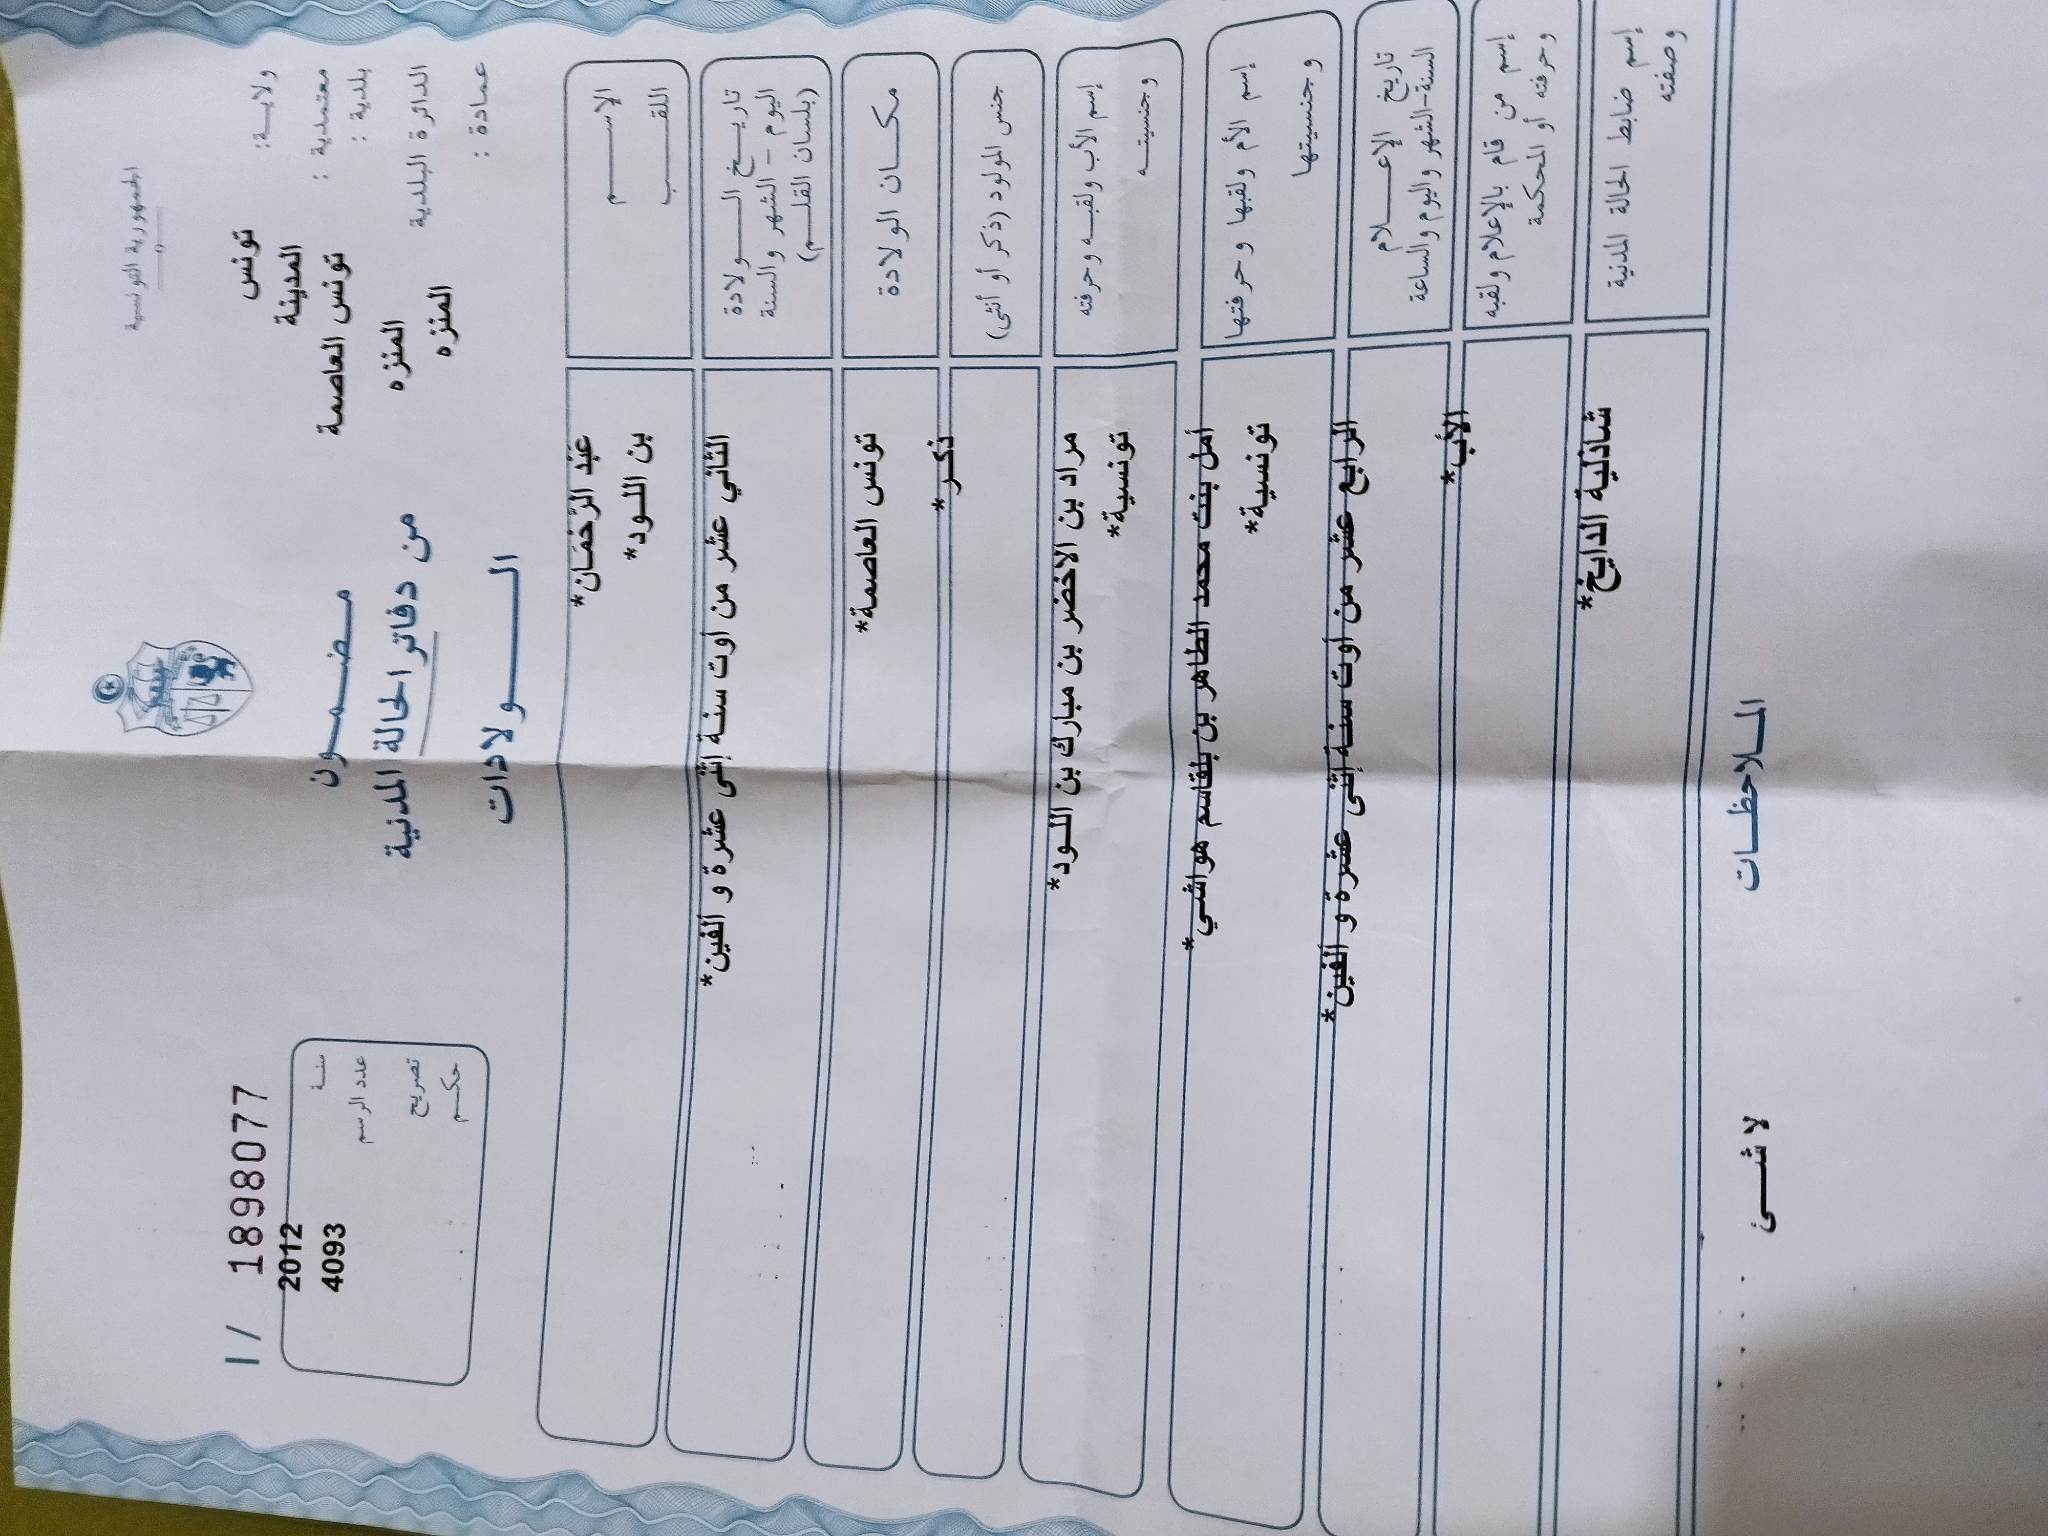 الجمهورية التونسية
ولايــة: تونس
معتمدية : المدينة
بلدية : تونس العاصمة
الدائرة البلدية المنزه
عمادة : المنزه
مـضـمـون
من دفاتر الحالة المدنية
الــولادات
I / 1898077
سنـة 2012
عدد الرسم 4093
تصريح
حكـم
الإســـم عَبْد الرَّحْمَـان*
اللقـــب بن اللـود*
تاريـــخ الـــولادة
اليوم - الشهر والسنة
(بلسان القلـم)
الثاني عشر من أوت سنـة إثنى عشرة و ألفين*
مكـــان الولادة تونس العاصمة*
جنس المولود (ذكر أو أنثى) ذكـر*
إسم الأب ولقبـه وحرفته مراد بن الاخضر بن مبارك بن اللـود*
وجنسيتـه تونسية*
إسم الأم ولقبها وحرفتها أمل بنت محمد الطاهر بن بلقاسم هواشي*
وجنسيتها تونسية*
تاريخ الإعـــلام
السنة-الشهر واليوم والساعة
الرابع عشر من أوت سنـة إثنى عشرة و ألفين*
إسم من قام بالإعلام ولقبه
وحرفته أو المحكمة
الأب*
إسم ضابط الحالة المدنية
وصفته
شاذلية الدايخ*
المـلاحظـات
لا شـئ